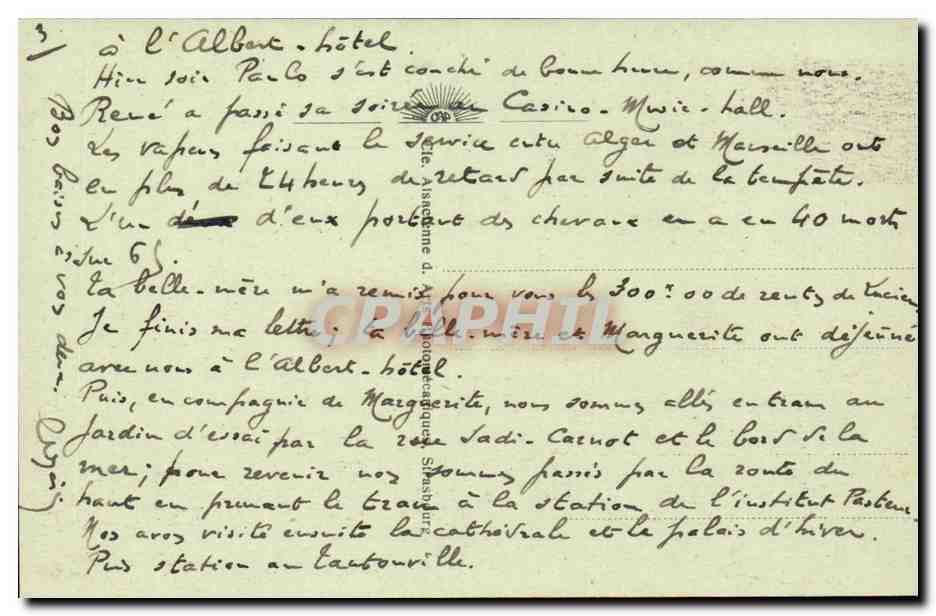 3/
à l'Albert-hôtel.
Hier soir PaCo s'est couché de bonne heure, comme nous.
René a passé sa soirée au Casino-Music-hall.
Les vapeurs faisant le service entre Alger et Marseille ont
eu plus de 24 heures de retard par suite de la tempête.
L'un d'eux portant des chevaux en a eu 40 morts
sur 65.
Ta belle-mère m'a remis pour vous les 300 r 00 de rentes de Lucien
Je finis ma lettre; ta belle-mère et Marguerite ont déjeuné
avec nous à l'Albert-hôtel.
Puis, en compagnie de Marguerite, nous sommes allés en tram au
Jardin d'essai par la rue Sadi-Carnot et le bord de la
mer; pour revenir nous sommes passés par la route du
haut en prenant le tram à la station de l'institut Pasteur
Nos avons visité ensuite la cathédrale et le palais d'hiver.
Puis station au Tantonville.
Bons baisers à vos deux.
Cie. Alsacienne d. Arts Photomécaniques, Strasbourg
CPAPHIL